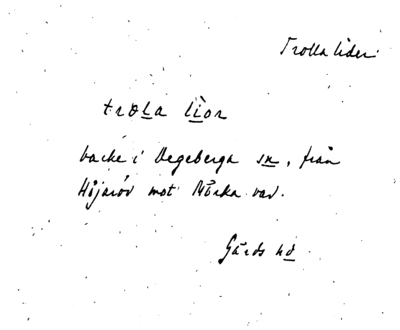 Trolla lider
troLa lìor
backe i Degeberga sn, från
Höjaröv mot Mörka vad.
Gärds hd